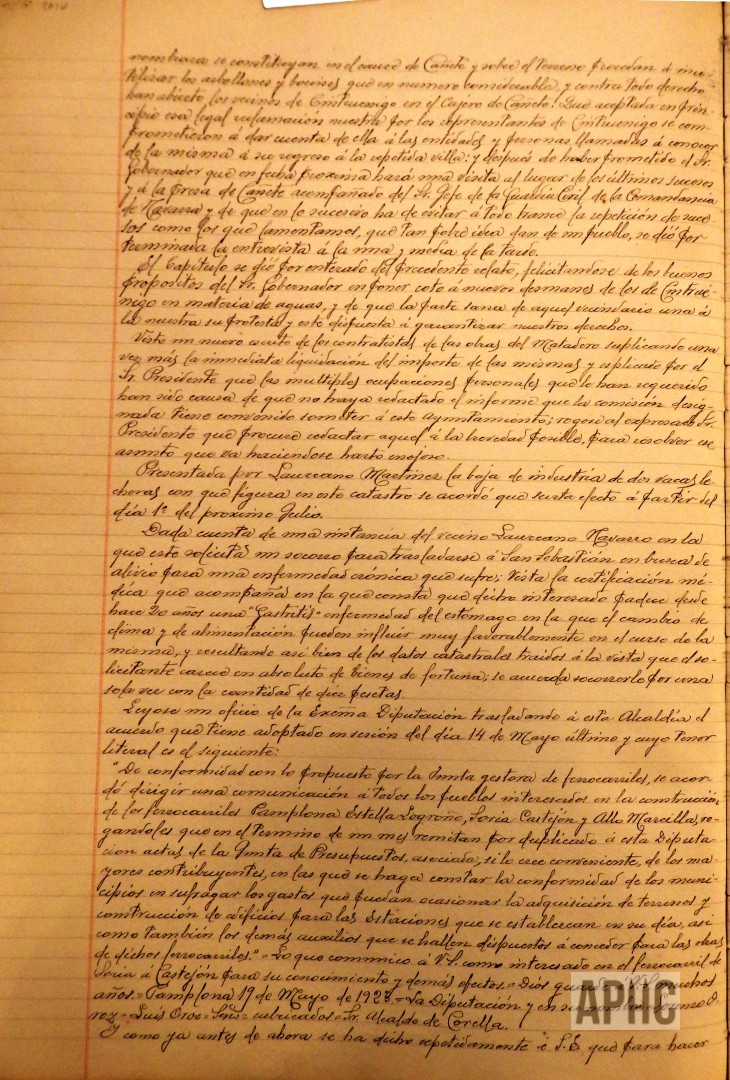 nombrara se constituyan en el cauce de Cañete y sobre el terreno procedan á inu-
tilizar los arbollones y bocines que en numero considerable, y contra todo derecho
han abierto los vecinos de Cintruenigo en el Campo de Cañete. Que aceptada en prin-
cipio esa legal reclamación nuestra por los representantes de Cintruenigo se com-
prometieron á dar cuenta de ella á las entidades y personas llamadas á conocer
de la misma á su regreso á la repetida villa; y después de haber prometido el Sr.
Gobernador que en fecha proxima hará una visita al lugar de los últimos sucesos
y á la Presa de Cañete acompañado del Sr. Jefe de la Guardia Civil de la Comandancia
de Navarra y de que en lo sucesivo ha de evitar á todo trance la repetición de suce-
sos como los que lamentamos, que tan pobre idea dan de un pueblo, se dió por
terminada la entrevista á la una y media de la tarde.
El Capítulo se dió por enterado del precedente relato, felicitandose de los buenos
propositos del Sr. Gobernador en poner coto á nuevos desmanes de los de Cintrue-
nigo en materia de aguas, y de que la parte sana de aquel vecindario una á
la nuestra su protesta y este dispuesta á garantizar nuestros derechos.
Visto un nuevo escrito de los contratistas de las obras del Matadero suplicando una
vez más la inmediata liquidación del importe de las mismas y explicado por el
Sr. Presidente que las multiples ocupaciones personales que le han requerido
han sido causa de que no haya redactado el informe que la comisión desig-
nada tiene convenido someter á este Ayuntamiento; rogose al expresado Sr.
Presidente que procure redactar aquel á la brevedad posible, para resolver ese
asunto que va haciendose harto enojoso.
Presentada por Laureano Martinez la baja de industria de dos vacas le-
cheras con que figura en este catastro se acordó que surta efecto á partir del
día 1º del proximo Julio.
Dada cuenta de una instancia del vecino Laureano Navarro en la
que este solicita un socorro para trasladarse á San Sebastián en busca de
alivio para una enfermedad crónica que sufre; Vista la certificación mé-
dica que acompaña en la que consta que dicho interesado padece desde
hace 20 años una "Gastritis" enfermedad del estómago en la que el cambio de
clima y de alimentación pueden influir muy favorablemente en el curso de la
misma, y resultando asi bien de los datos catastrales traidos á la vista que el so-
licitante carece en absoluto de bienes de fortuna; se acuerda socorrerle por una
sola vez con la cantidad de diez pesetas.
Leyose un oficio de la Excma Diputación trasladando á esta Alcaldía el
acuerdo que tiene adoptado en sesión del día 14 de Mayo último y cuyo tenor
literal es el siguiente:
"De conformidad con lo propuesto por la Junta gestora de ferrocarriles, se acor-
dó dirigir una comunicación á todos los pueblos interesados en la construcción
de los ferrocarriles Pamplona Estella Logroño, Soria Castejón y Allo Marcilla, ro-
gandoles que en el termino de un mes remitan por duplicado á esta Diputa-
cion actas de la Junta de Presupuestos, asociada, si lo cree conveniente, de los ma-
yores contribuyentes, en las que se haga constar la conformidad de los muni-
cipios en sufragar los gastos que puedan ocasionar la adquisición de terrenos y
construcción de edificios para las Estaciones que se establezcan en su día, asi
como también los demás auxilios que se hallen dispuestos á conceder para las obras
de dichos ferrocarriles." = Lo que comunico á V.S. como interesado en el ferrocarril de
Soria á Castejón para su conocimiento y demás efectos. = Dios guarde muchos
años. = Pamplona 19 de Mayo de 1923. = La Diputación y en su nombre
= Luis Oroz = = rubricados = Sr. Alcalde de Corella.
Y como ya antes de ahora se ha dicho repetidamente á S.E. que para hacer
APHC